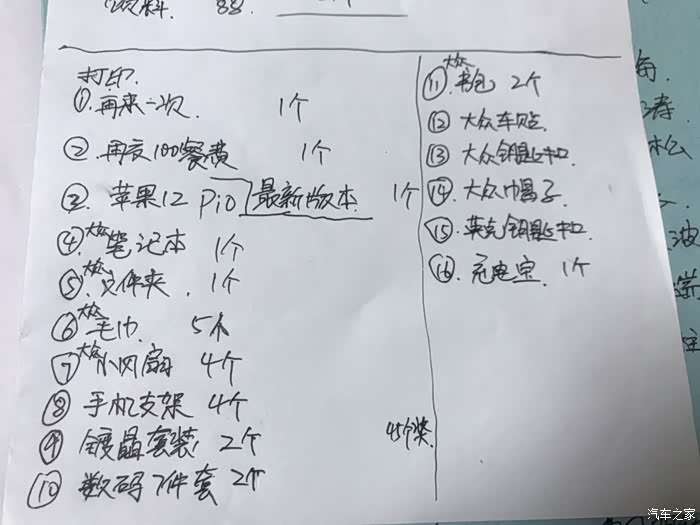 资料.
打印.
①.再来一次. 1个
② 再友100餐费 1个
③. 苹果12 Pro 最新版本. 1个
④.大众笔记本 1个
⑤.大众文件夹. 1个
⑥大众毛巾. 5个
⑦大众小风扇 4个
⑧ 手机支架 4个
⑨ 镀晶套装 2个
⑩ 数码7件套 2个
45个奖.
⑪.大众书包 2个
⑫ 大众车贴.
⑬ 大众钥匙扣
⑭ 大众帽子
⑮ 英克钥匙扣.
⑯. 充电宝. 1个
汽车之家